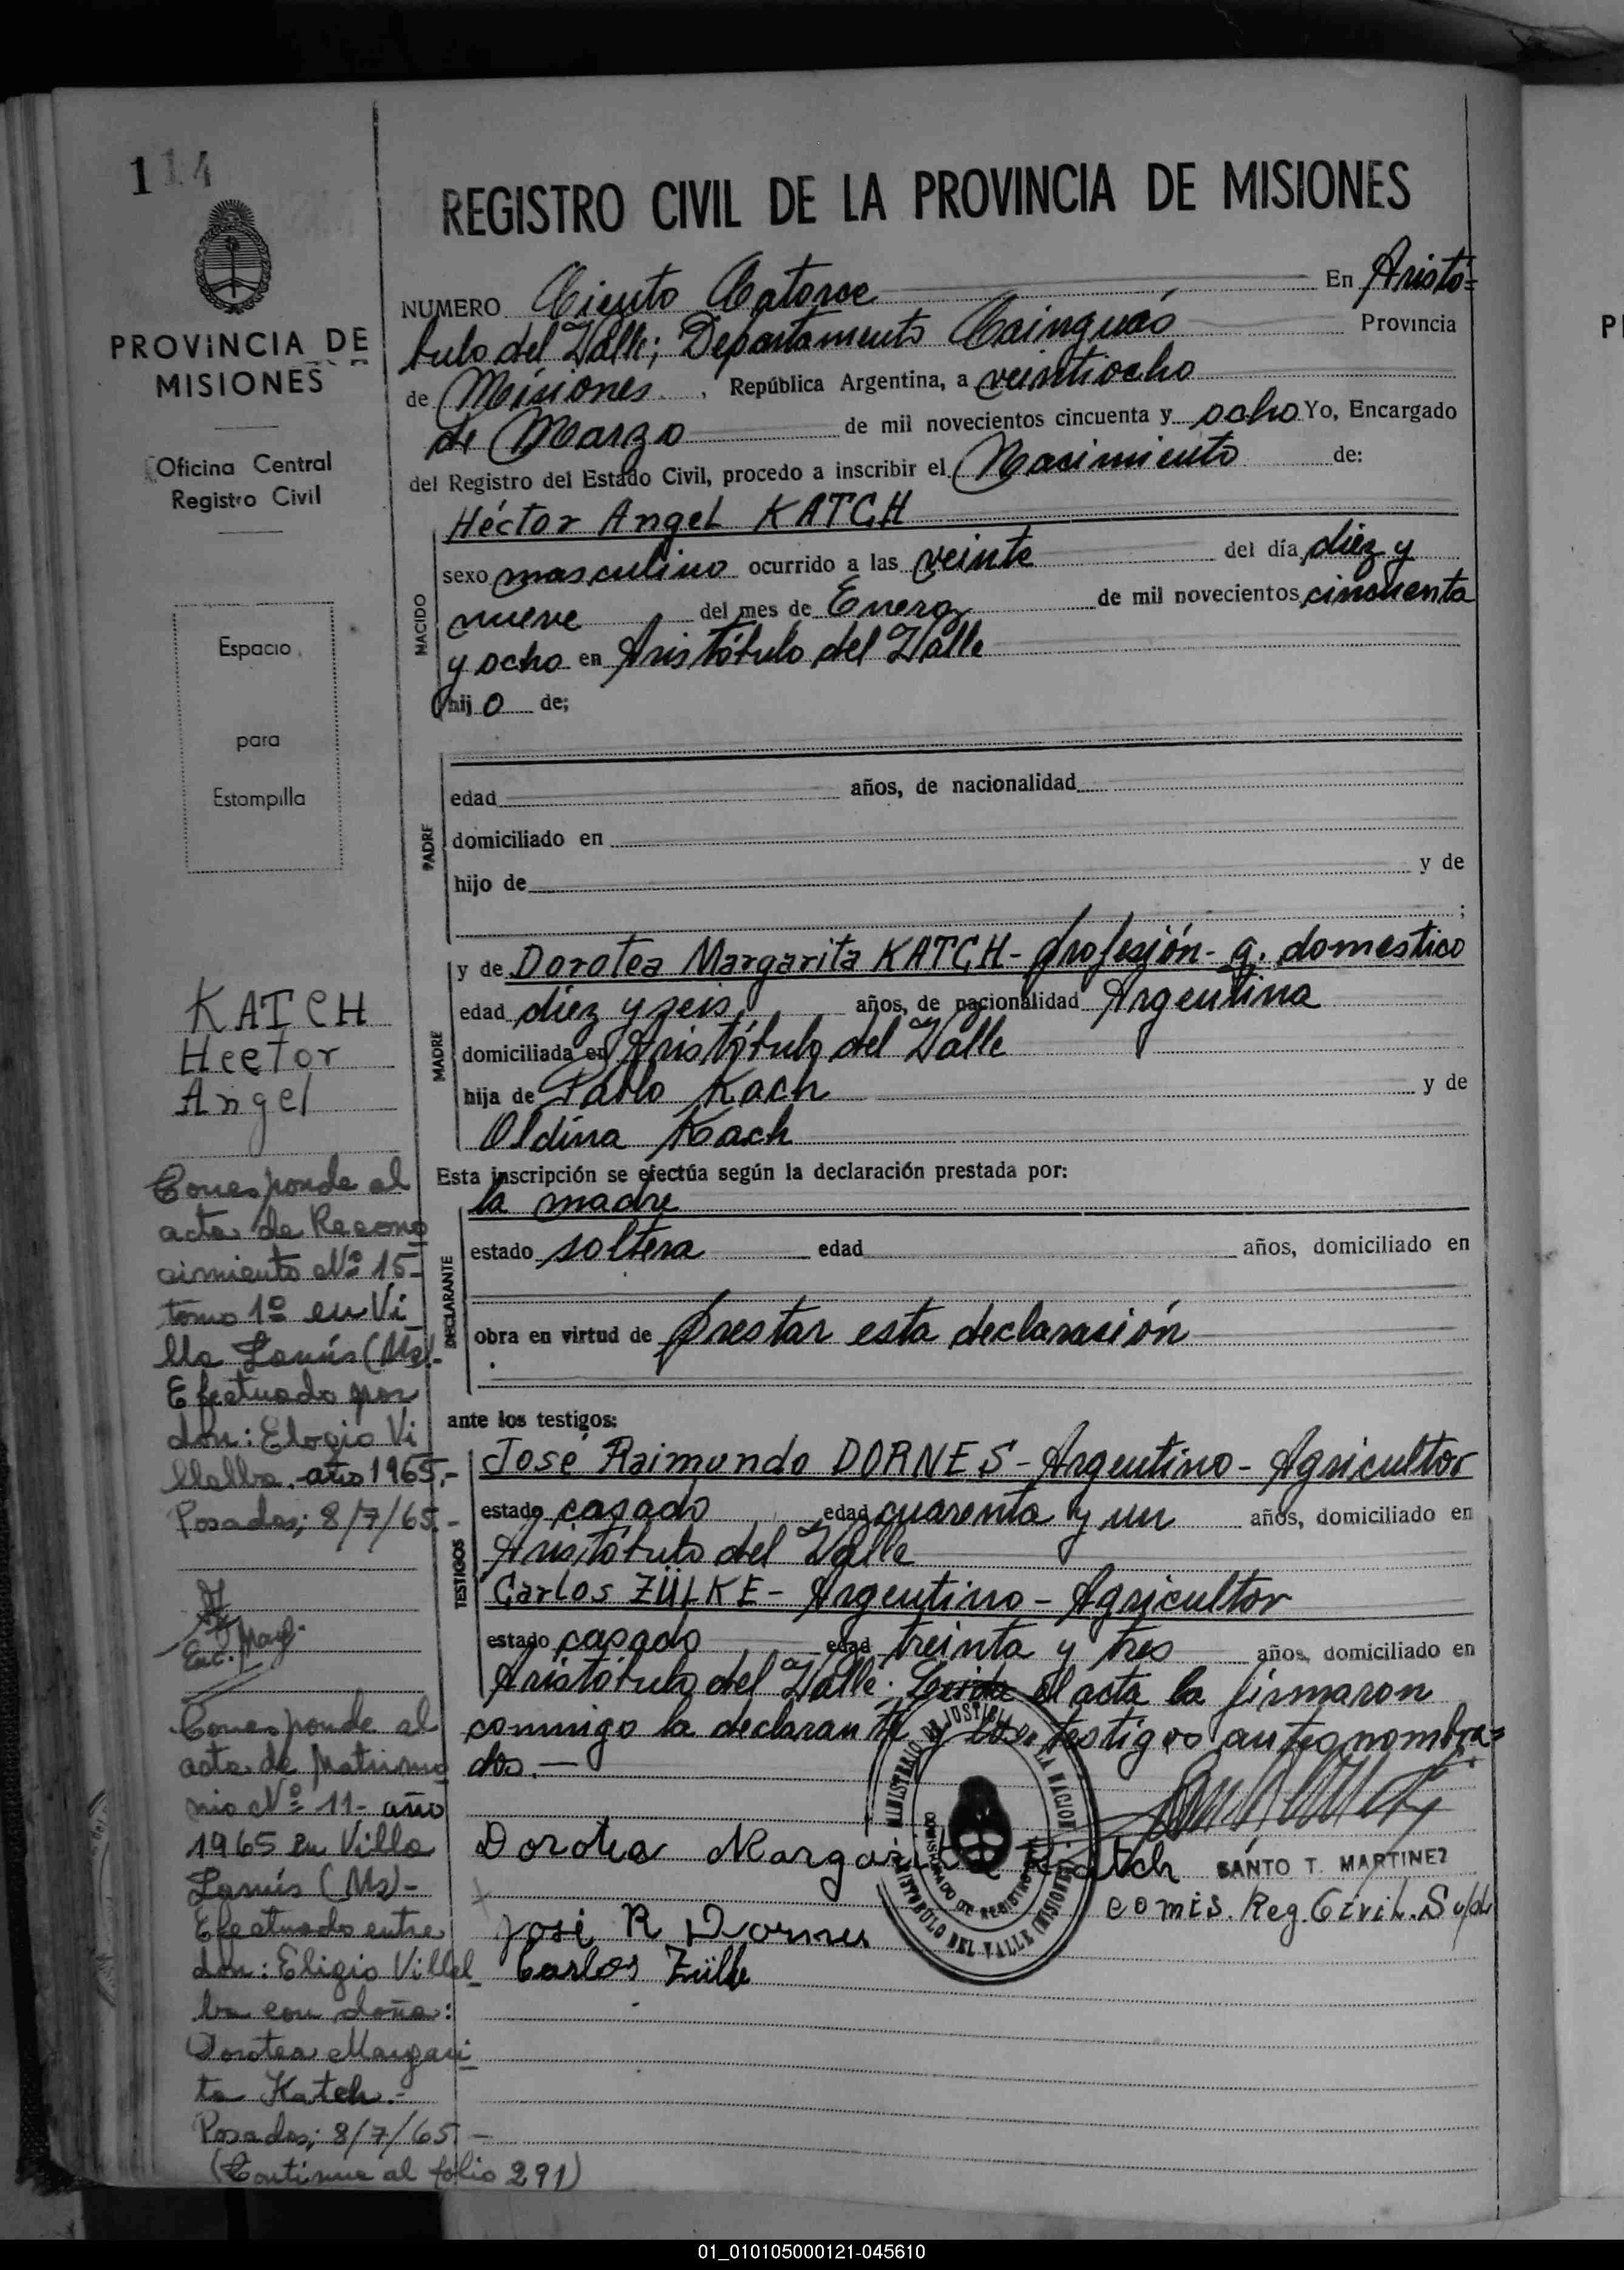 114
PROVINCIA DE
MISIONES
Oficina Central
Registro Civil
Espacio
para
Estampilla
KATCH
Hector
Angel
Corresponde al
acta de Recono
cimiento Nº 15-
tomo 1º en Vi
lla Lanús (Ms)-
Efectuado por
don: Elogio Vi
llalba. año 1965.-
Posadas; 8/7/65.-
Enc. Mayl.
Corresponde al
acta de Matrimo
nio Nº 11- año
1965 en Villa
Lanús (Ms)-
Efectuado entre
don: Eligio Villal
ba con doña:
Dorotea Margari
ta Katch.-
Posadas; 8/7/65.-
(Continua al folio 291)
REGISTRO CIVIL DE LA PROVINCIA DE MISIONES
NUMERO Ciento Catorce En Aristó=
bulo del Valle; Departamento Cainguás Provincia
de Misiones, República Argentina, a veintiocho
de Marzo de mil novecientos cincuenta y ocho Yo, Encargado
del Registro del Estado Civil, procedo a inscribir el Nacimiento de:
Héctor Angel KATCH
NACIDO
sexo masculino ocurrido a las veinte del día diez y
nueve del mes de Enero de mil novecientos cincuenta
y ocho en Aristóbulo del Valle
hijo de;
PADRE
edad años, de nacionalidad
domiciliado en
hijo de y de
;
MADRE
y de Dorotea Margarita KATCH- profesión- q. domestico
edad diez y seis años, de nacionalidad Argentina
domiciliada en Aristóbulo del Valle
hija de Pablo Kach y de
Oldina Kach
Esta inscripción se efectúa según la declaración prestada por:
la madre
DECLARANTE
estado soltera edad años, domiciliado en
obra en virtud de prestar esta declarasión
ante los testigos:
TESTIGOS
José Raimundo DORNES- Argentino- Agricultor
estado casado edad cuarenta y un años, domiciliado en
Aristóbulo del Valle
Carlos ZÜLKE- Argentino- Agricultor
estado casado edad treinta y tres años, domiciliado en
Aristóbulo del Valle. Leida el acta la firmaron
conmigo la declarante y los testigos antes nombra=
dos.—
MINISTERIO DE JUSTICIA LA NACION
COMISARIADO DE REGISTRO
ARISTOBULO DEL VALLE (MISIONES)
Dorotea Margarita Katch
SANTO T. MARTINEZ
comis. Reg. Civil. Sup
José R Dornes
Carlos Zülke
01_010105000121-045610